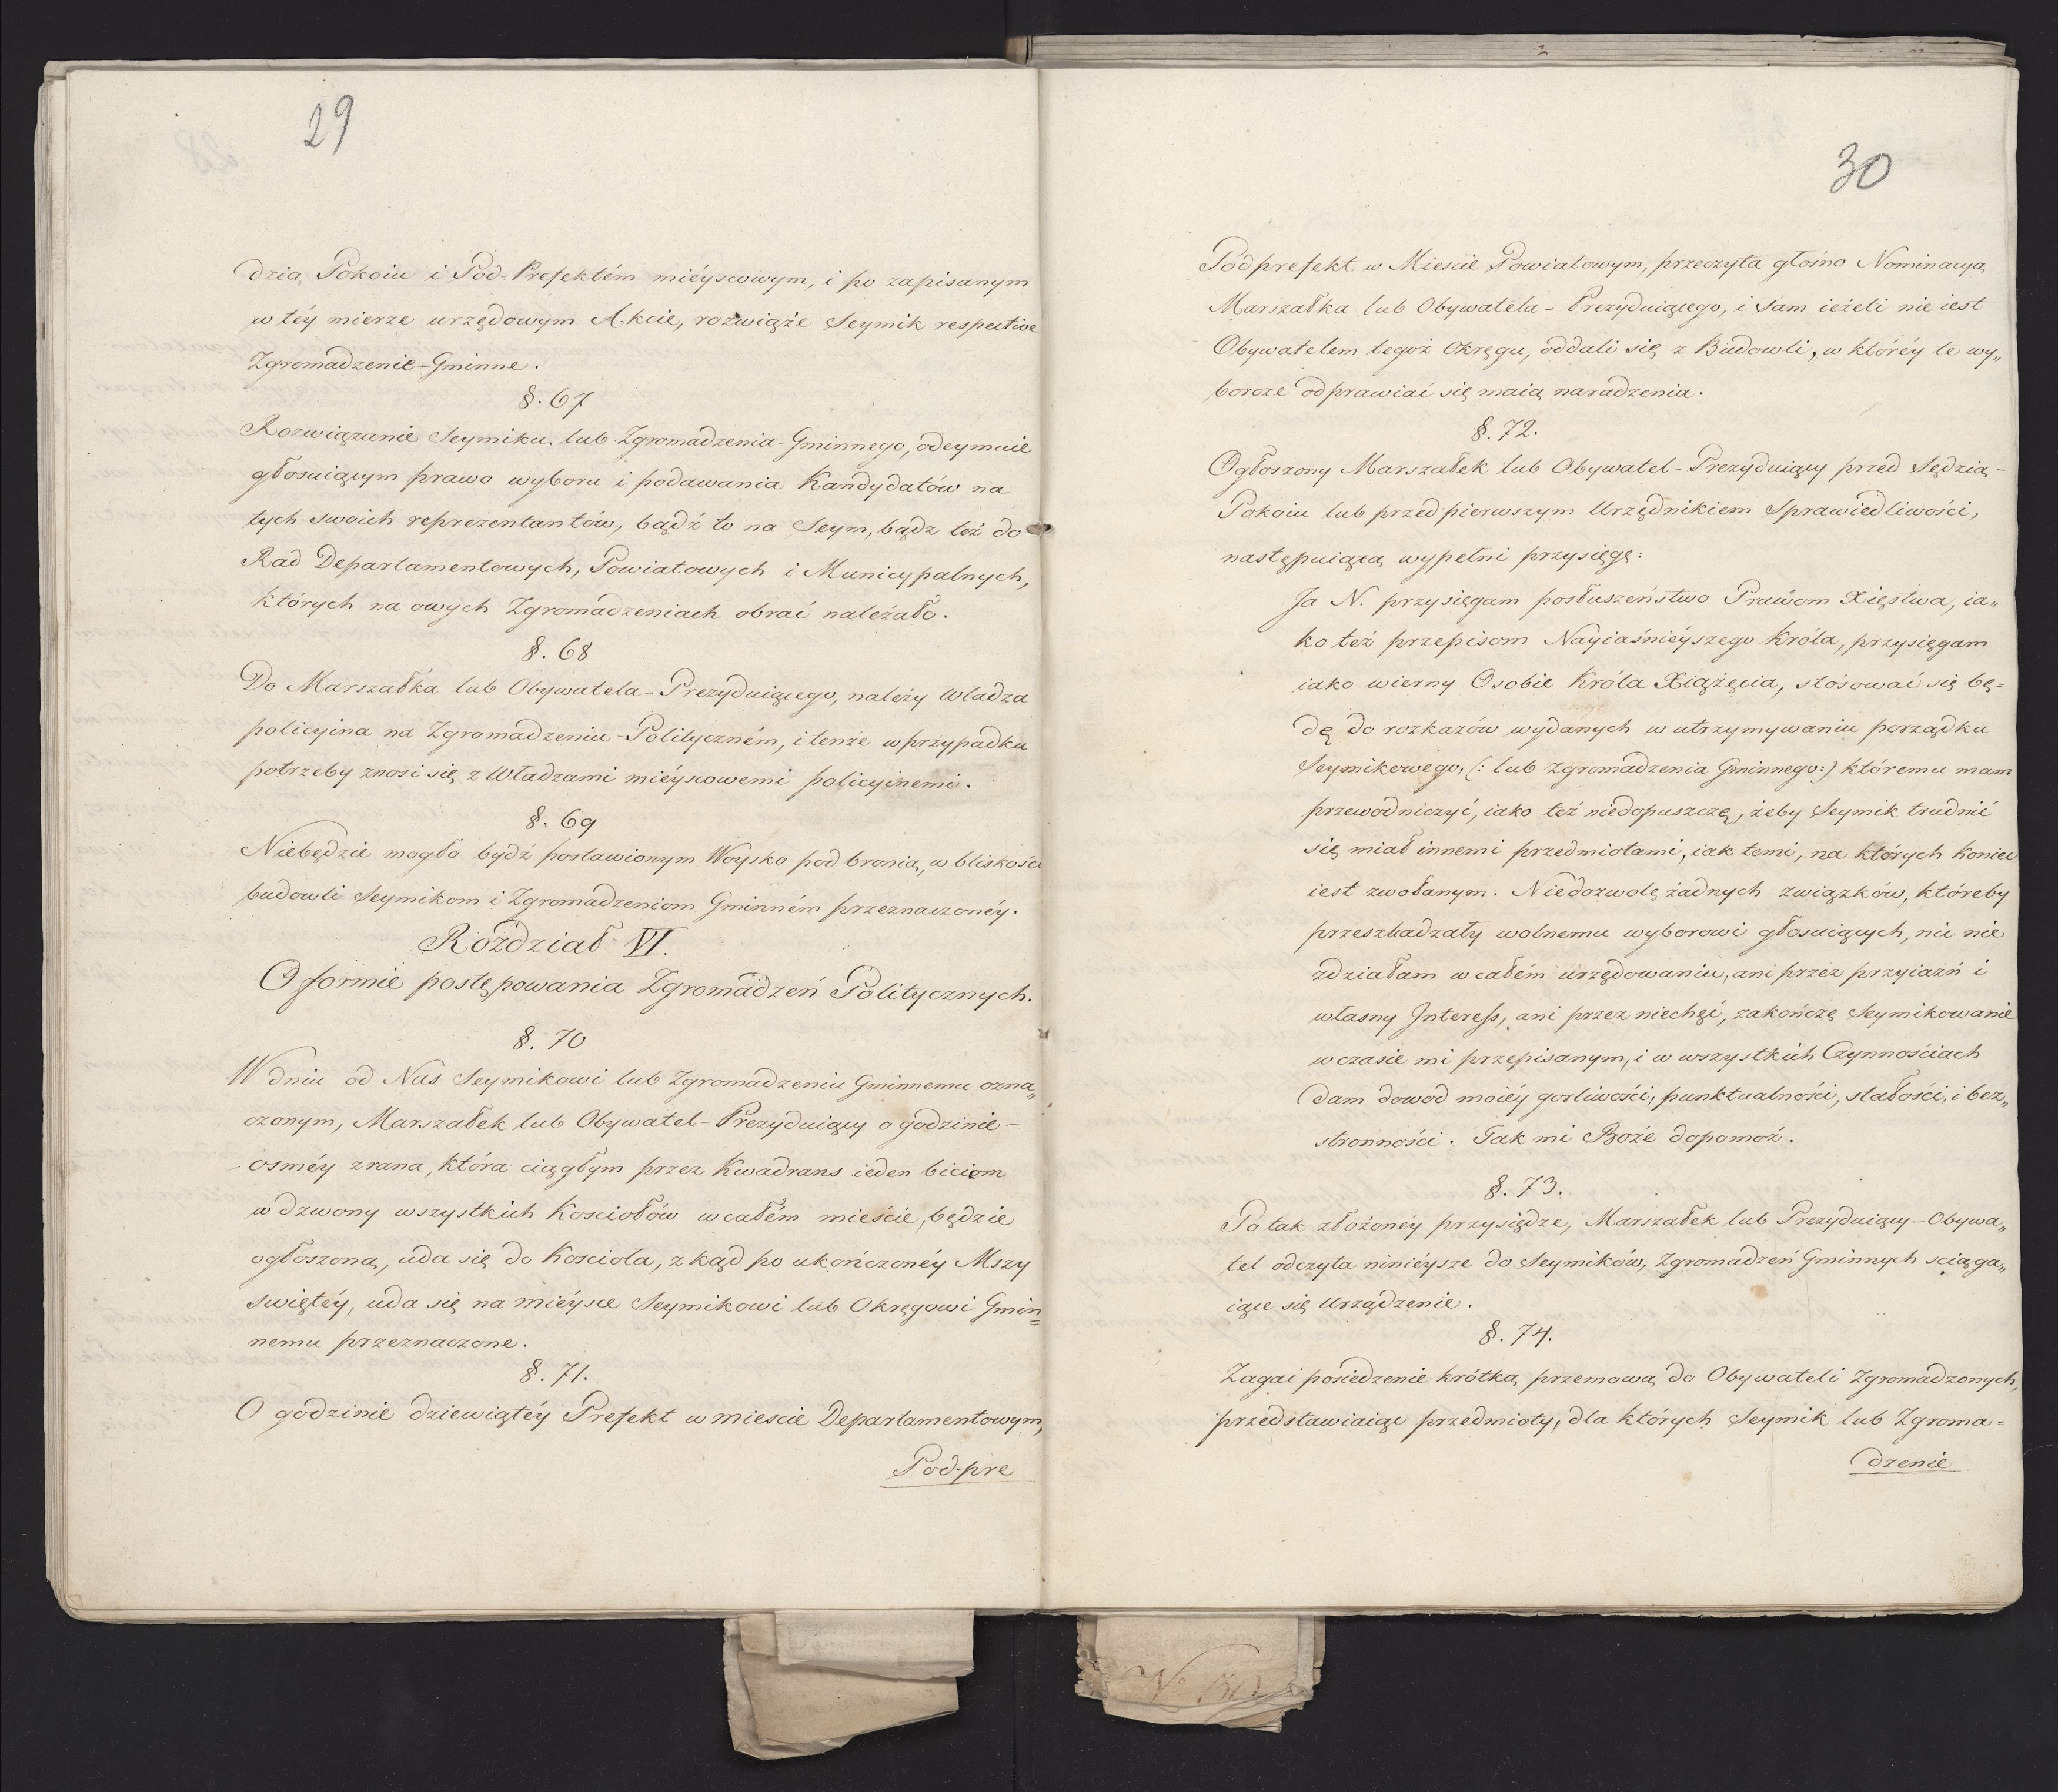 29
dzią Pokoiu i Pod-Prefektém miéyscowym, i po zapisanym
w téy mierze urzędowym Akcie, rozwiąże Seymik respective
Zgromadzenie-Gminne.
§. 67
Rozwiązanie Seymiku lub Zgromadzenia-Gminnego, odeymuie
głosuiącym prawo wyboru i podawania Kandydatów na
tych swoich reprezentantów, bądź to na Seym, bądz też do
Rad Departamentowych, Powiatowych i Municypalnych,
których na owych Zgromadzeniach obrać należało.
§. 68
Do Marszałka lub Obywatela-Prezyduiącego, należy Władza
policyina na Zgromadzeniu-Polityczném, i tenże w przypadku
potrzeby znosi się z Władzami miéyscowemi policyinemi.
§. 69
Niebędzie mogło bydź postawionym Woysko pod bronią, w bliskości
budowli Seymikom i Zgromadzeniom Gminném przeznaczonéy.
Rozdział VI.
O formie postępowania Zgromadzeń Politycznych.
§. 70
W dniu od Nas Seymikowi lub Zgromadzeniu Gminnemu ozna„
czonym, Marszałek lub Obywatel-Prezyduiący o godzinie-
osméy zrana, która ciągłym przez Kwadrans ieden biciem
w dzwony wszystkich Kosciołów w całém mieście, będzie
ogłoszona, uda się do Kościoła, zkąd po ukończonéy Mszy
Swiętéy, uda się na miéysce Seymikowi lub Okręgowi Gmin=
nemu przeznaczone.
§. 71.
O godzinie dziewiątéy Prefekt w miescie Departamentowym,
Pod-pre
30
Podprefekt w Miescie Powiatowym, przeczyta głośno Nominacyą
Marszałka lub Obywatela-Prezyduiącego, i sam ieżeli nie iest
Obywatelem tegoż Okręgu, oddali się z Budowli, w któréy te wy„
borcze odprawiać się maią naradzenia.
§. 72.
Ogłoszony Marszałek lub Obywatel-Prezyduiący przed Sędzią-
Pokoiu lub przed pierwszym Urzędnikiem Sprawiedliwości,
następuiącą wypełni przysięgę:
Ja N. przysięgam posłuszeństwo Prawom Xięstwa, ia„
ko też przepisom Nayiaśniéyszego Króla, przysięgam
iako wierny Osobie Króla Xiążęcia, stósować się bę=
dę do rozkazów wydanych w utrzymywaniu porządku
Seymikowego, (: lub Zgromadzenia Gminnego:) któremu mam
przewodniczyć, iako też niedopuszczę, żeby Seymik trudnić
się miał innemi przedmiotami, iak temi, na których koniec
iest zwołanym. Niedozwolę żadnych związków, któreby
przeszkadzały wolnemu wyborowi głosuiących, nic nie
zdziałam w całém urzędowaniu, ani przez przyiaźń i
własny Interess, ani przez niechęć, zakończę Seymikowanie
w czasie mi przepisanym, i w wszystkich Czynnościach
dam dowód moiéy gorliwości, punktualności, stałości, i bez„
stronności. Tak mi Boże dopomoż.
§. 73.
Po tak złożonéy przysiędze, Marszałek lub Prezyduiący-Obywa„
tel odczyta niniéysze do Seymików, Zgromadzeń Gminnych sciąga„
iące się Urządzenie.
§. 74.
Zagai posiedzenie krótką przemową do Obywateli Zgromadzonych,
przedstawiaiąc przedmioty, dla których Seymik lub Zgroma=
dzenie